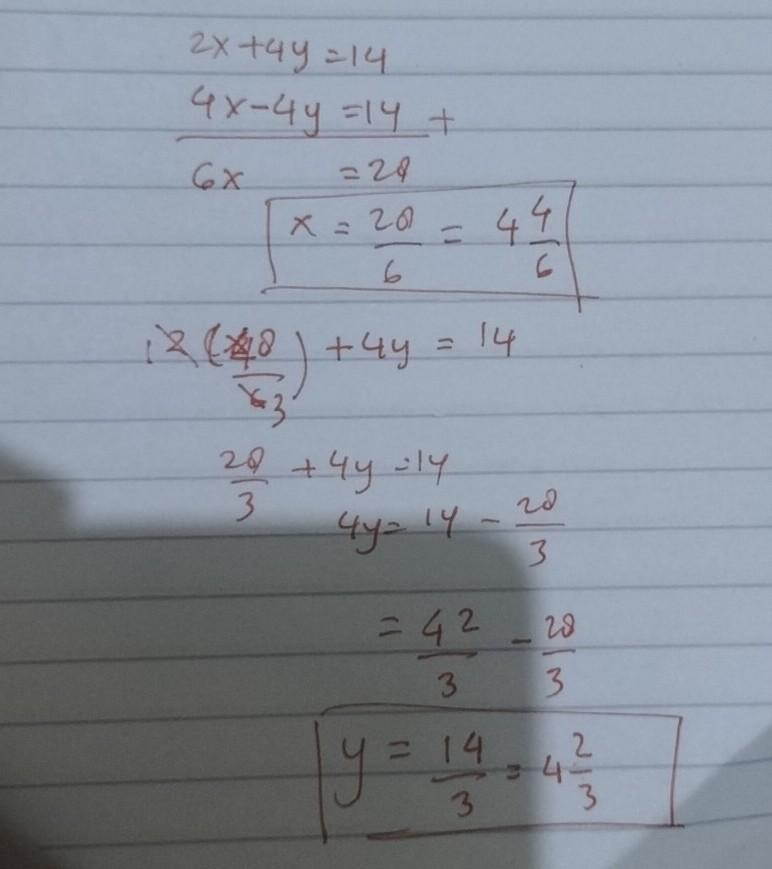 2x+4y=14
4x-4y=14 +
6x =28
x = 28/6 = 4 4/6
+4y = 14
28/3 + 4y =14
4y= 14 - 28/3
= 42/3 - 28/3
y = 14/3 = 4 2/3